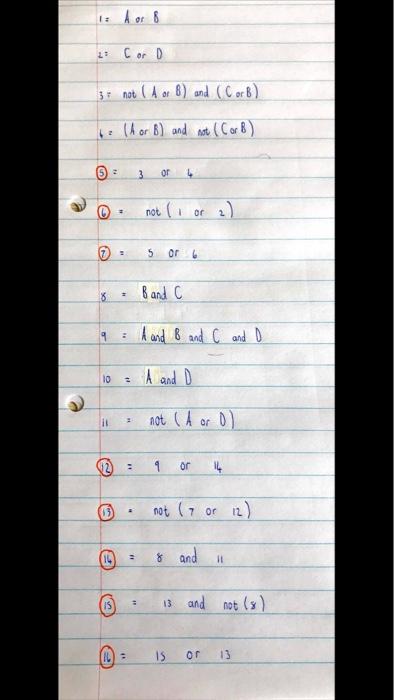 1 = A or B
2 = C or D
3 = not (A or B) and (C or B)
4 = (A or B) and not (C or B)
5 = 3 or 4
6 = not (1 or 2)
7 = 5 or 6
8 = B and C
9 = A and B and C and D
10 = A and D
11 = not (A or D)
12 = 9 or 14
13 = not (7 or 12)
14 = 8 and 11
15 = 13 and not (8)
16 = 15 or 13